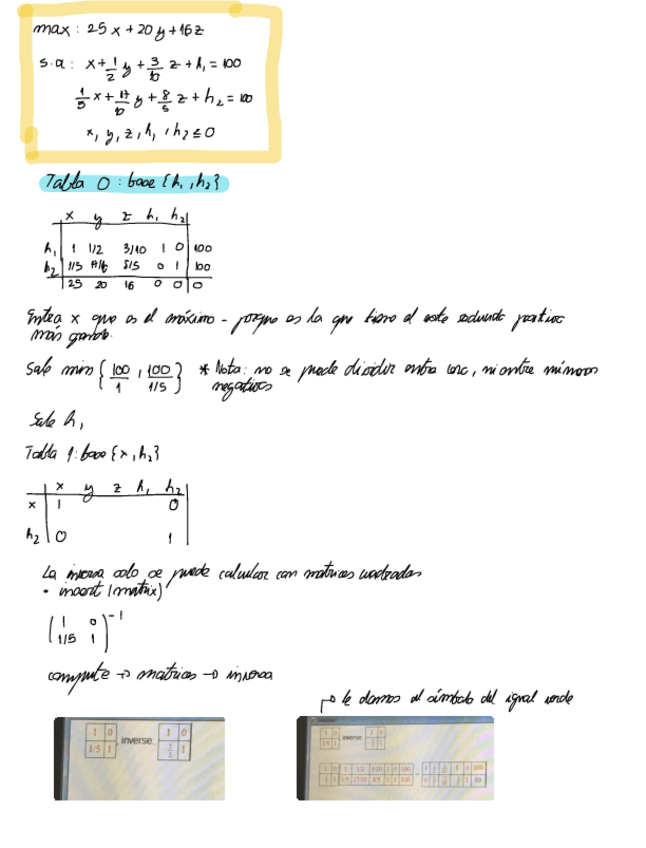 max: 25x + 20y + 16z
s.a: x + 1/2 y + 3/10 z + h₁ = 100
1/5 x + 17/10 y + 8/5 z + h₂ = 100
x, y, z, h₁, h₂ ≤ 0
Tabla 0: base {h₁, h₂}
x y z h₁ h₂
h₁ 1 1/2 3/10 1 0 100
h₂ 1/5 17/10 8/5 0 1 100
25 20 16 0 0 0
Entra x que es el máximo - porque es la que tiene el coste reducido positivo
más grande.
Sale min {100/1, 100/1/5} * Nota: no se puede dividir entre cero, ni entre números
negativos
Sale h₁
Tabla 1: base {x, h₂}
x y z h₁ h₂
x 1 0
h₂ 0 1
La inversa solo se puede calcular con matrices cuadradas
• insert (matrix)
(1 0
1/5 1)⁻¹
compute → matrices → inversa
→ le damos al símbolo del igual verde
1 0 , inverse: 1 0
1/5 1 1/5 1
inverse